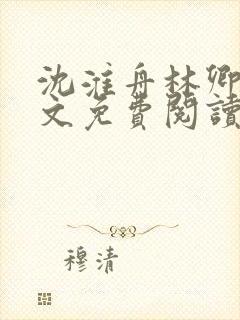 沈淮舟林卿
文免費閱讀
穆清